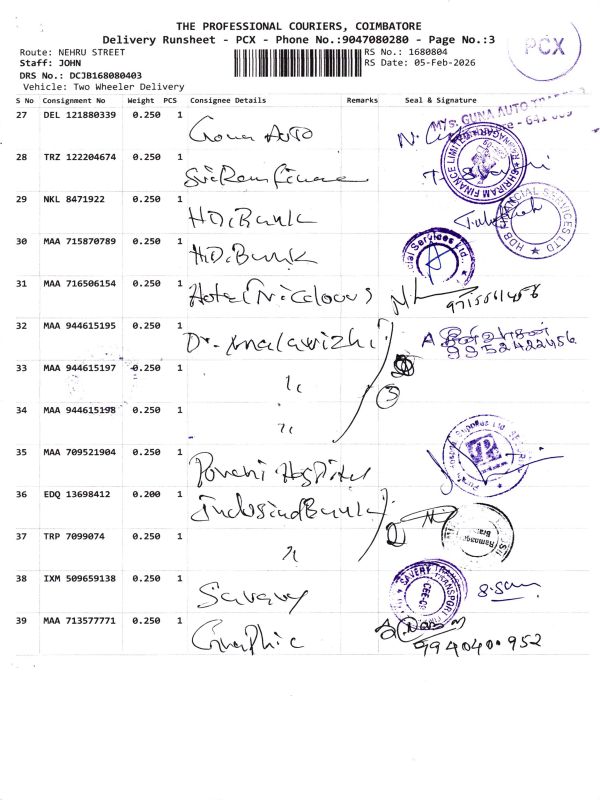 THE PROFESSIONAL COURIERS, COIMBATORE
Delivery Runsheet - PCX - Phone No.:9047080280 - Page No.:3
Route: NEHRU STREET
RS No.: 1680804
Staff: JOHN
RS Date: 05-Feb-2026
DRS No.: DCJB168080403
Vehicle: Two Wheeler Delivery
PCX
S No Consignment No Weight PCS Consignee Details Remarks Seal & Signature
27 DEL 121880339 0.250 1 Guna Auto
M/s. GUNA AUTO
28 TRZ 122204674 0.250 1 Sri Ram Finance
SHRIRAM FINANCE LIMITED
29 NKL 8471922 0.250 1 HD. Bank
HDB FINANCIAL SERVICES LTD
30 MAA 715870789 0.250 1 HD. Bank
cial Services Ltd.
31 MAA 716506154 0.250 1 Hotel
32 MAA 944615195 0.250 1 Dr. 
9952422456
33 MAA 944615197 0.250 1 "
34 MAA 944615198 0.250 1 "
3
35 MAA 709521904 0.250 1 Hospital
36 EDQ 13698412 0.200 1 Indusind Bank
37 TRP 7099074 0.250 1 "
2
38 IXM 509659138 0.250 1 Savary
SAVERY TRANSPORT
39 MAA 713577771 0.250 1 Graphic
9940400952